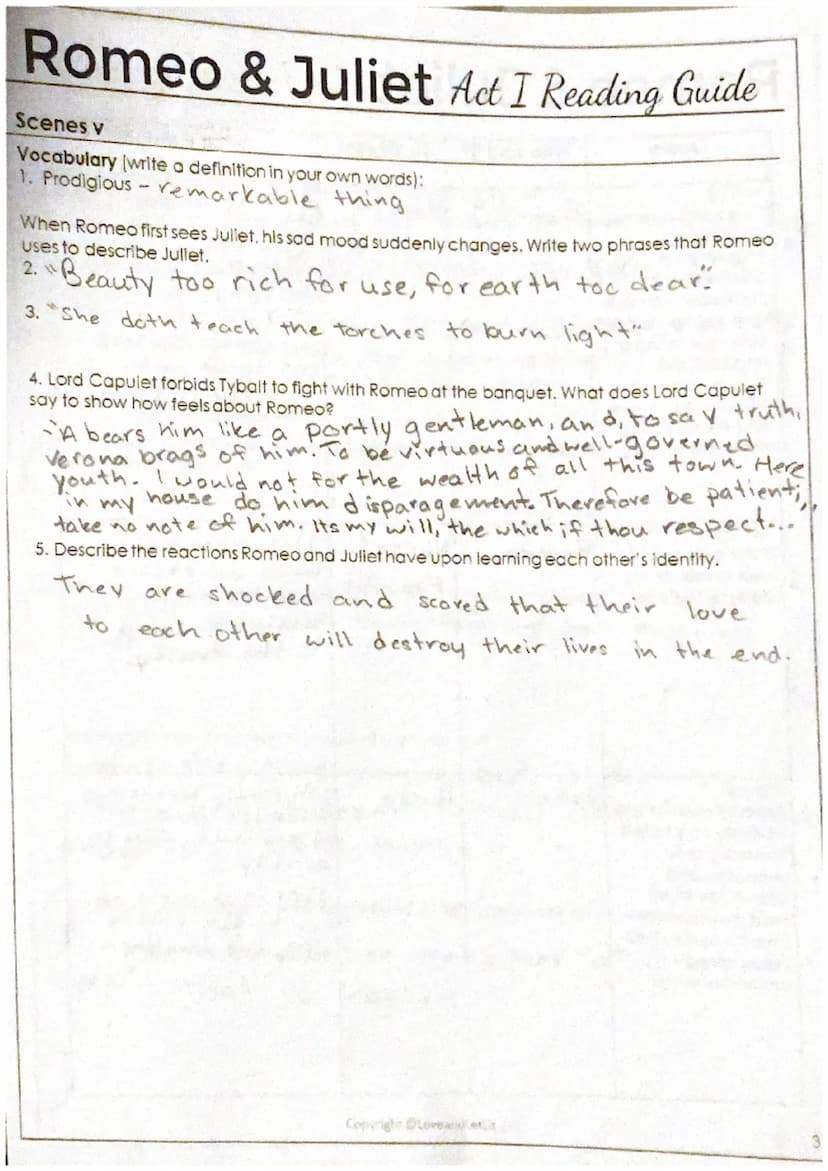 Romeo & Juliet Act I Reading Guide
Scenes v
Vocabulary (write a definition in your own words):
1. Prodigious - remarkable thing
When Romeo first sees Juliet, his sad mood suddenly changes. Write two phrases that Romeo
uses to describe Juliet.
2. "Beauty too rich for use, for earth too dear."
3. "She doth teach the torches to burn light"
4. Lord Capulet forbids Tybalt to fight with Romeo at the banquet. What does Lord Capulet
say to show how feels about Romeo?
- 'A bears him like a portly gentleman, and, to say truth,
Verona brags of him. To be virtuous and well-governed
youth. I would not for the wealth of all this town. Here
in my house do him disparagement. Therefore be patient,
take no note of him. Its my will, the which if thou respect...
5. Describe the reactions Romeo and Juliet have upon learning each other's identity.
They are shocked and scared that their love
to each other will destroy their lives in the end.
Copyright ©
3